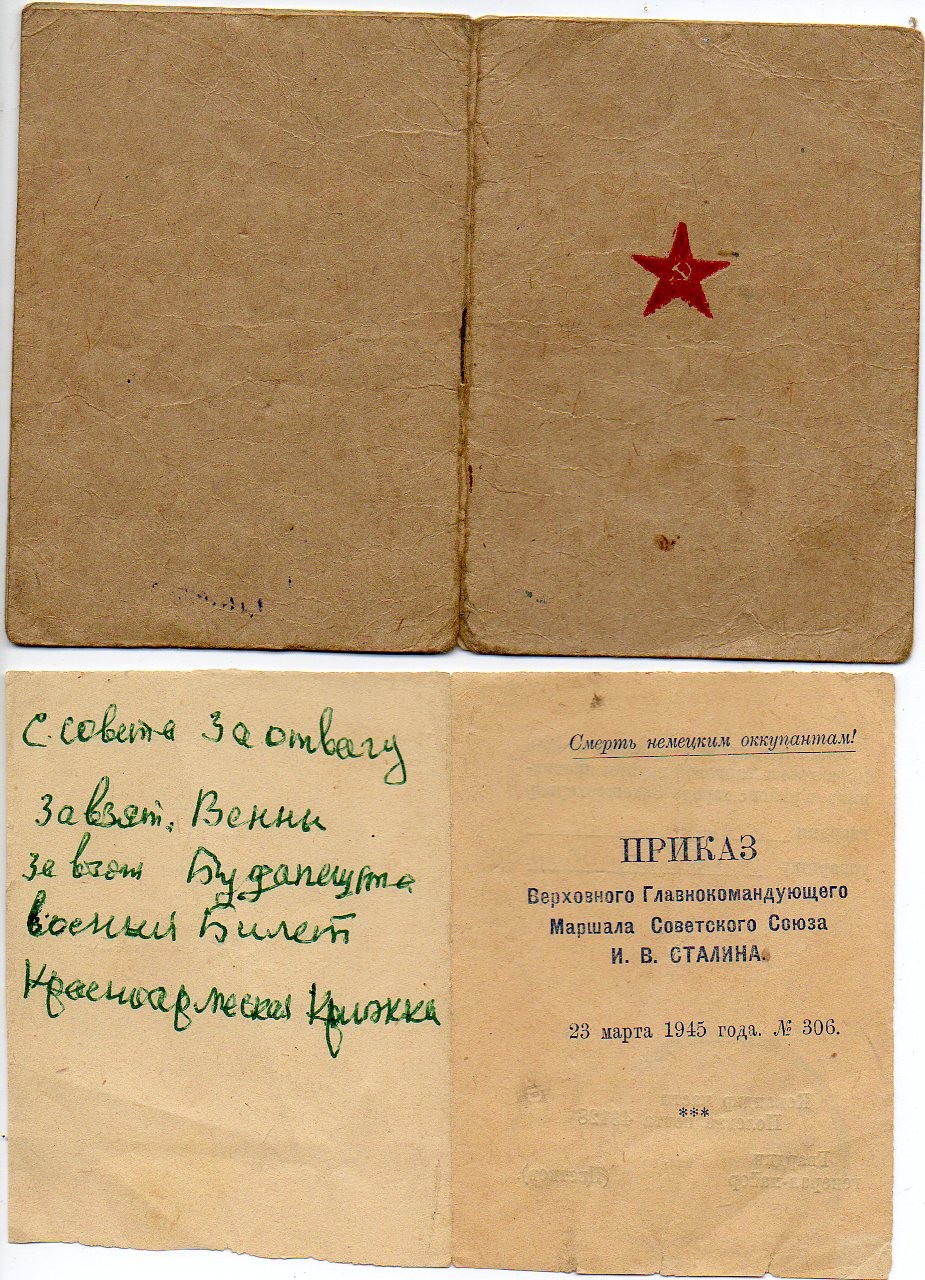 С. совета За отвагу
За взят. Венны
За взят Будапешта
военный Билет
Красноармеская Крижка
Смерть немецким оккупантам!
ПРИКАЗ
Верховного Главнокомандующего
Маршала Советского Союза
И. В. СТАЛИНА.
23 марта 1945 года. № 306.
***